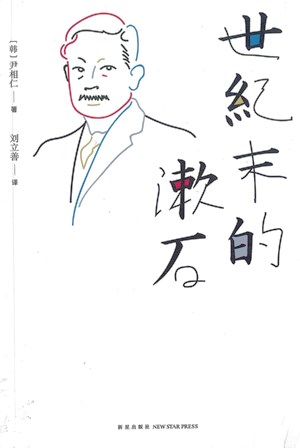 世紀末的
漱石
[韩]尹相仁——著
刘立善——译
新星出版社 NEW STAR PRESS